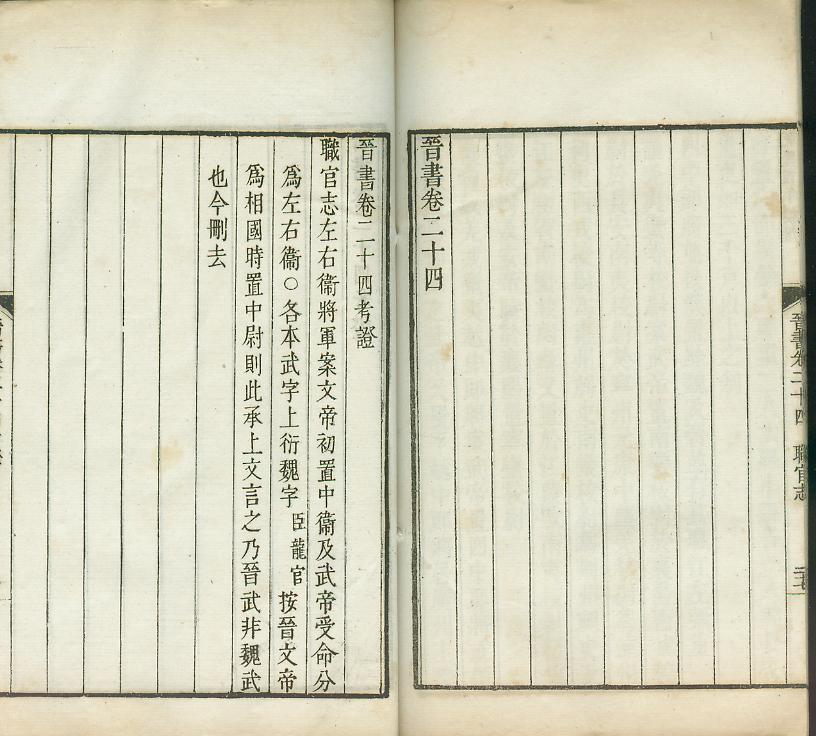 晉書卷二十四 職官志
晉書卷二十四
晉書卷二十四考證
職官志左右衞將軍案文帝初置中衞及武帝受命分
爲左右衞○各本武字上衍魏字臣龍官按晉文帝
爲相國時置中尉則此承上文言之乃晉武非魏武
也今刪去